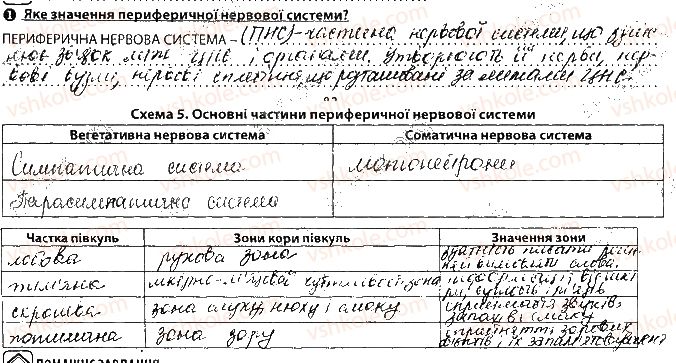 1 Яке значення периферичної нервової системи?
ПЕРИФЕРИЧНА НЕРВОВА СИСТЕМА – (ПНС) - частина нервової системи, що здійс-
нює зв'язок між ЦНС і органами. Утворюють її нерви, нер-
вові вузли, нервові сплетіння, що розташовані за межами ЦНС.
Схема 5. Основні частини периферичної нервової системи
Вегетативна нервова система Соматична нервова система
Симпатична система мотонейрони
Парасимпатична система
Частка півкуль Зони кори півкуль Значення зони
лобова рухова зона здатність писати
тім'яна шкірно-м'язової чутливості зона вимовляти слова.
скронева зона слуху, нюху і смаку сприйняття звуків,
потилична зона зору запахів і смаку
сприйняття зорових
ДОМАШНЄ ЗАВДАННЯ